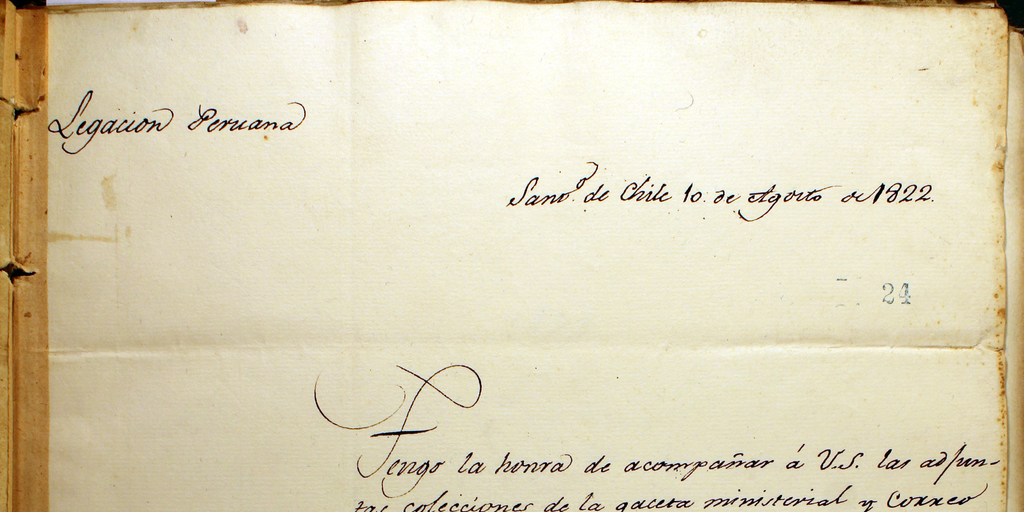 Legacion Peruana
Sant.º de Chile 10. de Agosto de 1822.
24
Tengo la honra de acompañar á V.S. las adjun-
tas colecciones de la gaceta ministerial y Correo